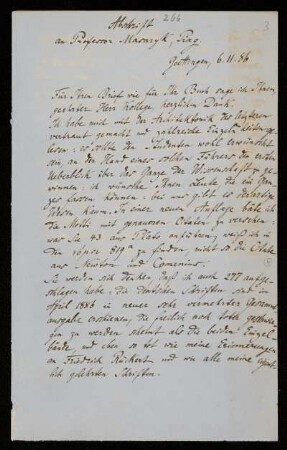 Abschrift 266
an Professor Masaryk, Prag
Göttingen, 6.11.86
Für Ihren Brief wie für Ihr Buch sage ich Ihnen,
geehrter Herr Kollege herzlichen Dank.
Ich habe mich mit der Architektonik des Ganzen
vertraut gemacht und zahlreiche Einzelheiten
gelesen: es sollte den Studenten wohl erwünscht
sein, an der Hand eines solchen Führers den ersten
Ueberblick über das Ganze der Wissenschaft zu ge-
winnen: ich wünsche Ihnen Leute die am Gan-
zen freuen können: bei uns gibt es derartige
Wesen kaum. In einer neuen Auflage bitte ich
die Motti mit genaueren Citaten zu versehen:
was Sie 43 aus Plato anführen, weiß ich in
den νόμοι 819a zu finden, nicht so die Citate
aus Newton und Comenius.
Sie werden sich denken, daß ich auch 277 aufge-
schlagen habe. Die Deutschen Schriften sind im
April 1886 in neuer sehr vermehrter Gesammt-
ausgabe erschienen, die freilich noch toter geschwie-
gen zu werden scheint als die beiden Einzel-
bände, und eben so tot wie meine Erinnerungen
an Friedrich Rückert und wie alle meine eigent-
lich gelehrten Schriften.